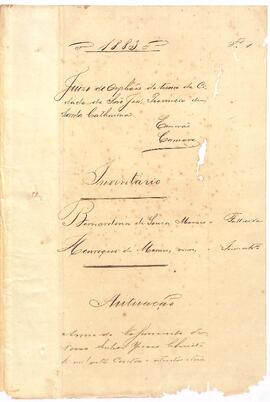 1883 Fl. 1
Juizo de Orphãos do termo da Ci
dade de São José, Provincia de
Santa Catharina
Escrivão
Camara
Inventário
Bernardina de Souza Moraes - Fallecida
Henrique de Moraes
Autuação
Anno do Nascimento de
Nosso Senhor Jesus Christo
de mil oito centos e oitenta e tres